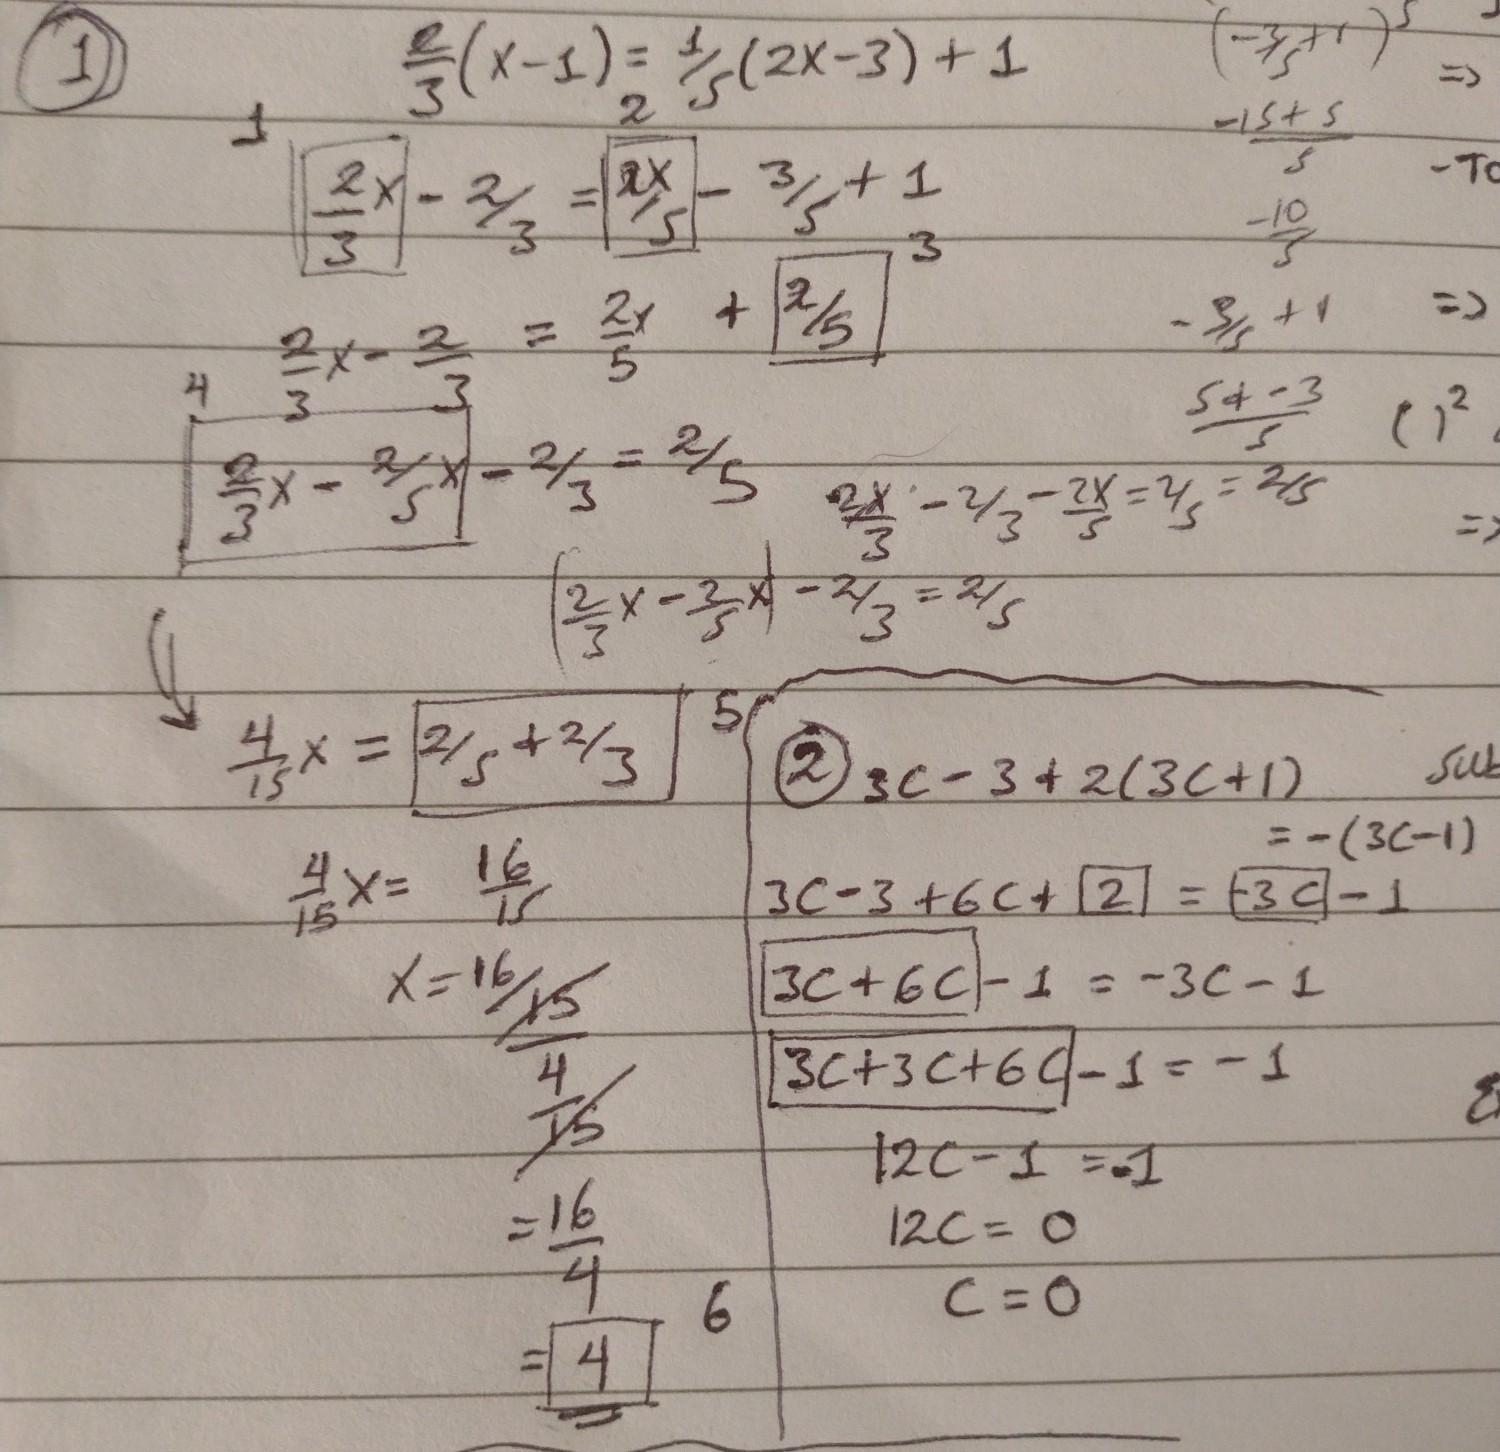 1
2/3(x-1) = 1/5(2x-3) + 1
1 2
2/3x - 2/3 = 2x/5 - 3/5 + 1
3
2/3x - 2/3 = 2x/5 + 2/5
4
2/3x - 2/5x - 2/3 = 2/5
2x/3 - 2/3 - 2x/5 = 2/5 = 2/5
(2/3x - 2/5x) - 2/3 = 2/5
5
4/15x = 2/5 + 2/3
4/15x = 16/15
x = 16/15
4/15
= 16/4
6
= 4
2 3C - 3 + 2(3C+1)
= -(3C-1)
3C - 3 + 6C + 2 = -3C - 1
3C + 6C - 1 = -3C - 1
3C + 3C + 6C - 1 = -1
12C - 1 = -1
12C = 0
C = 0
(-3/5 + 1)5
-15+5/5
-10/5
-3/5 + 1
5+-3/5
=>
-To
=>
( )²
=>
Sub